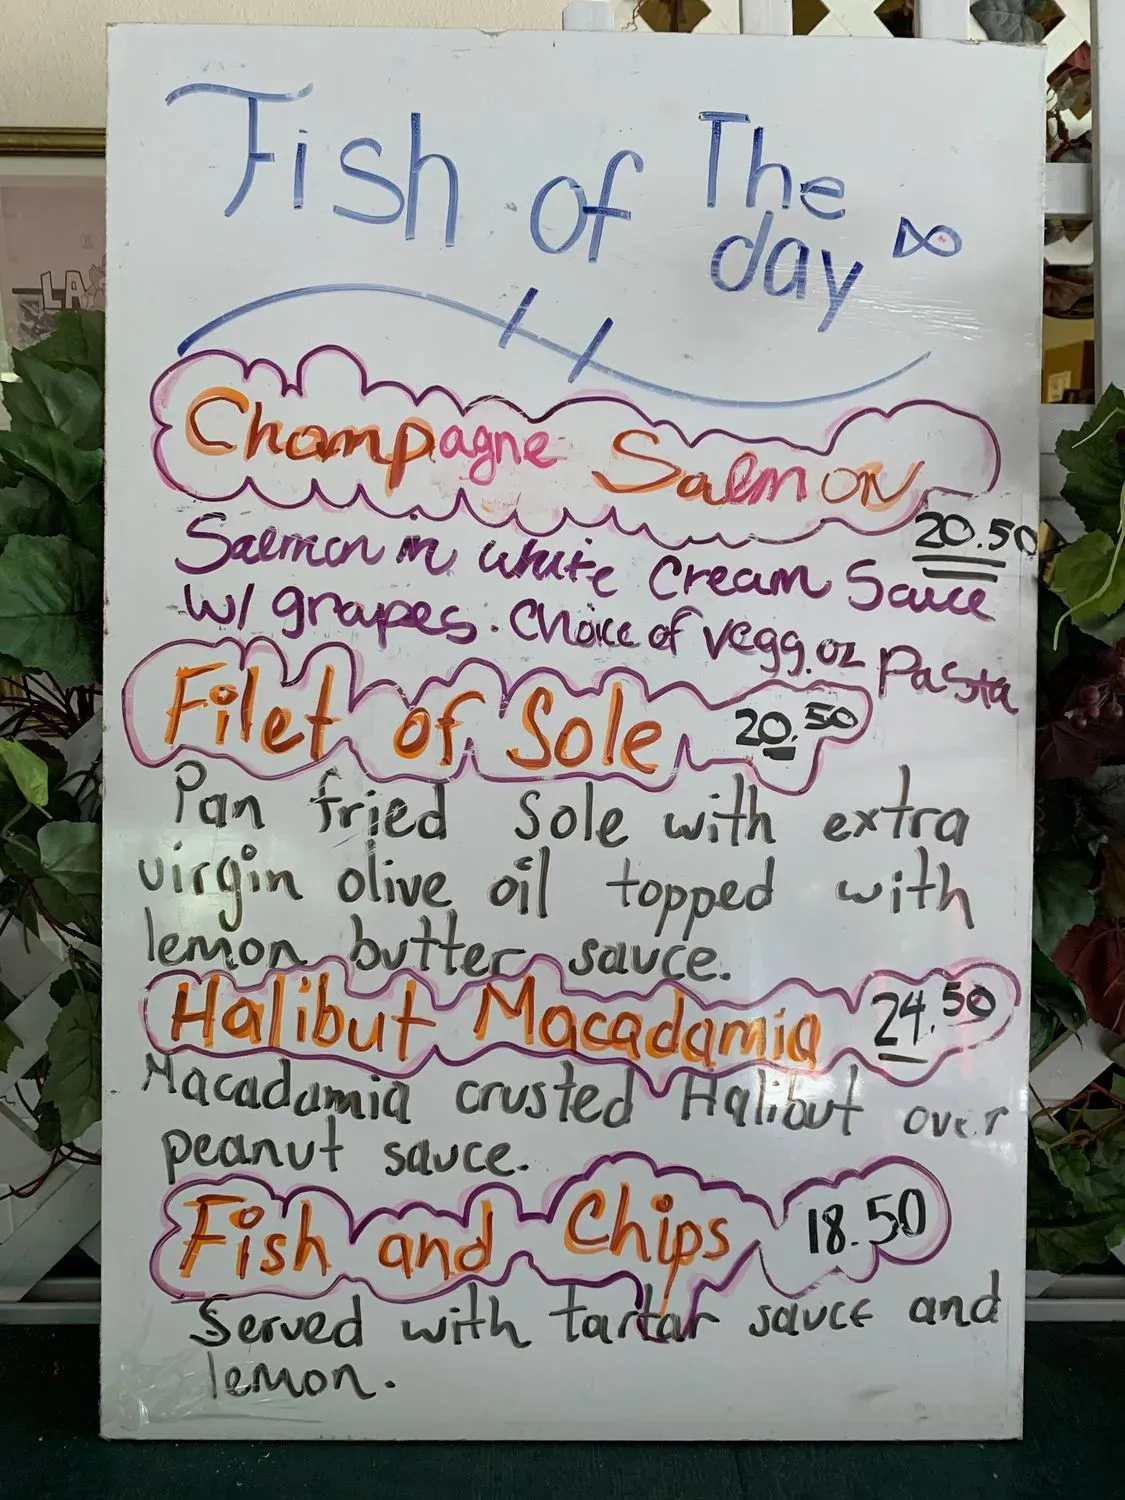 Fish of The
day
Champagne Salmon
20.50
Salmon in white Cream Sauce
w/ grapes. Choice of vegg. or Pasta
Filet of Sole 20.50
Pan fried Sole with extra
virgin olive oil topped with
lemon butter sauce.
Halibut Macadamia 24.50
Macadamia crusted Halibut over
peanut sauce.
Fish and Chips 18.50
Served with tartar sauce and
lemon.
LA